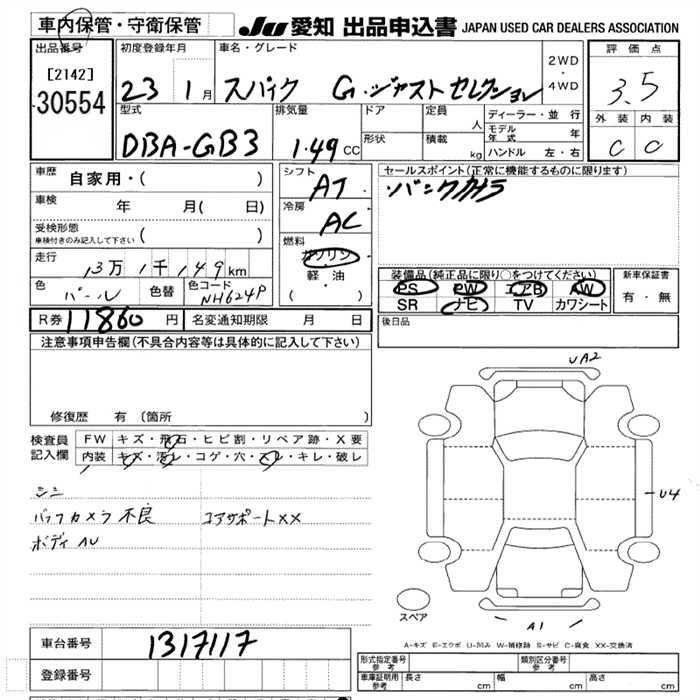 車内保管・守衛保管
JU 愛知 出品申込書 JAPAN USED CAR DEALERS ASSOCIATION
出品番号
[2142]
30554
初度登録年月
23 1月
車名・グレード
スパイク G・ジャストセレクション
2WD
・
4WD
評価点
3.5
外装 内装
C C
型式
DBA-GB3
排気量
1.49 CC
ドア
形状
定員 人
積載 kg
ディーラー・並行
モデル年式 年
ハンドル 左・右
車歴 自家用・( )
車検 年 月( 日)
受検形態
車検付きのみ記入して下さい ( )
走行 13万1千149km
色 パール 色替 色コード NH624P
R券 11860円 名変通知期限 月 日
シフト
AT
冷房
AC
燃料
ガソリン
・
軽・油
( ・ )
セールスポイント(正常に機能するものに限ります)
・バックカメラ
装備品(純正品に限り○をつけてください)
PS PW エアB AW
SR ナビ TV カワシート
新車保証書
有・無
後日品
注意事項申告欄(不具合内容等は具体的に記入して下さい)
修復歴 有 〔箇所 〕
検査員記入欄
FW キズ・飛石・ヒビ割・リペア跡・X要
内装 キズ・汚レ・コゲ・穴・スレ・キレ・破レ
バックカメラ不良 コアサポートXX
ボディAU
UA2
U4
A1
スペア
A-キズ E-エクボ U-凹み W-補修跡 S-サビ C-腐食 XX-交換済
車台番号 1317117
登録番号
形式指定番号
参考
類別区分番号
参考
車庫証明用
参考
長さ cm 幅 cm 高さ cm